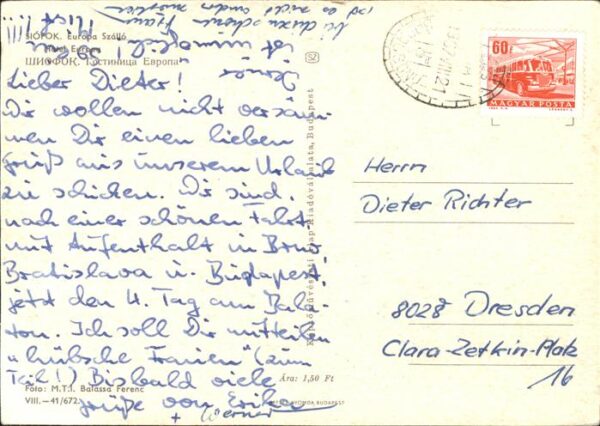 SIÓFOK. Európa Szálló
Hotel Europa
ШИОФОК. Гостиница Европа
Lieber Dieter!
Wir wollen nicht versäu-
men Dir einen lieben
Gruß aus unserem Urlaub
zu schicken. Wir sind,
nach einer schönen Fahrt
mit Aufenthalt in Brno
Bratislava u. Budapest,
jetzt den 4. Tag am Bala-
ton. Ich soll Dir mitteilen
"hübsche Frauen" (zum
Teil!) Bis bald viele
Grüße von Erika
+ Werner
Bei diesen schönen Frauen
ist es nicht anders möglich
ist unmöglich!
Foto: M.T.I. Balassa Ferenc
VIII.—41/672.
Ára: 1,50 Ft
Képzőművészeti Alap Kiadóvállalata, Budapest
60f
MAGYAR POSTA
Herrn
Dieter Richter
8028 Dresden
Clara-Zetkin-Platz
16